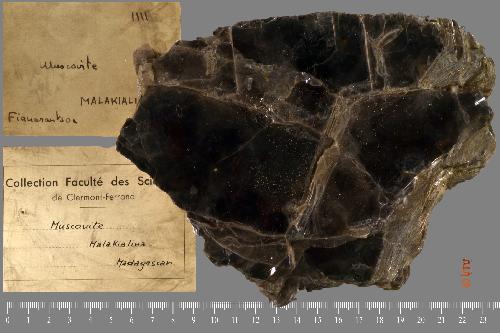 1111
Muscovite
MALAKIALI
Fianarantsoa
Collection Faculté des Sci
de Clermont-Ferrand
Muscovite
Malakialina
Madagascar
0 1 2 3 4 5 6 7 8 9 10 11 12 13 14 15 16 17 18 19 20 21 22 23